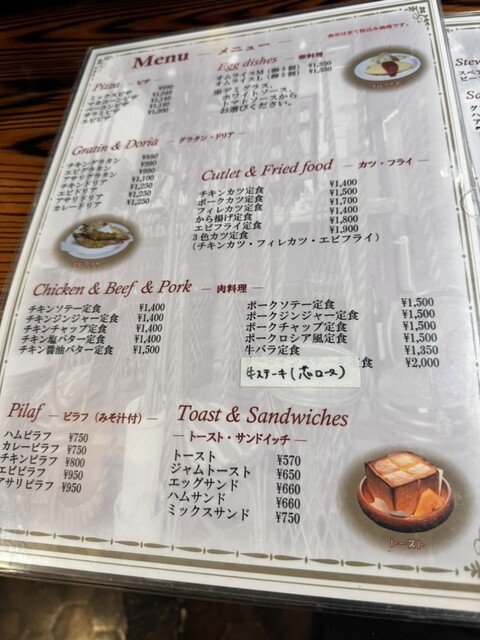 Menu — メニュー —
表示は全て税込み価格です。
Pizza — ピザ
ミックスピザ
マヨコーンピザ
ベーコンピザ
サラミピザ
エビピザ
Egg dishes — 卵料理
オムライスM(卵2個) ¥1,250
オムライスL(卵3個) ¥1,350
※デミグラス、
ホワイトソース、
トマトソースから
お選びください。
Gratin & Doria — グラタン・ドリア —
チキングラタン ¥880
エビグラタン ¥990
アサリグラタン ¥990
チキンドリア ¥1,100
エビドリア ¥1,250
アサリドリア ¥1,250
カレードリア ¥1,250
Cutlet & Fried food — カツ・フライ —
チキンカツ定食 ¥1,400
ポークカツ定食 ¥1,500
フィレカツ定食 ¥1,700
から揚げ定食 ¥1,400
エビフライ定食 ¥1,800
3色カツ定食 ¥1,900
(チキンカツ・フィレカツ・エビフライ)
Chicken & Beef & Pork — 肉料理 —
チキンソテー定食 ¥1,400
チキンジンジャー定食 ¥1,400
チキンチャップ定食 ¥1,400
チキン塩バター定食 ¥1,400
チキン醤油バター定食 ¥1,500
ポークソテー定食 ¥1,500
ポークジンジャー定食 ¥1,500
ポークチャップ定食 ¥1,500
ポークロシア風定食 ¥1,500
牛バラ定食 ¥1,350
牛ステーキ(芯ロース) 定食 ¥2,000
Pilaf — ピラフ(みそ汁付) —
ハムピラフ ¥750
カレーピラフ ¥750
チキンピラフ ¥800
エビピラフ ¥950
アサリピラフ ¥950
Toast & Sandwiches
— トースト・サンドイッチ —
トースト ¥570
ジャムトースト ¥650
エッグサンド ¥660
ハムサンド ¥660
ミックスサンド ¥750
トースト
Stew